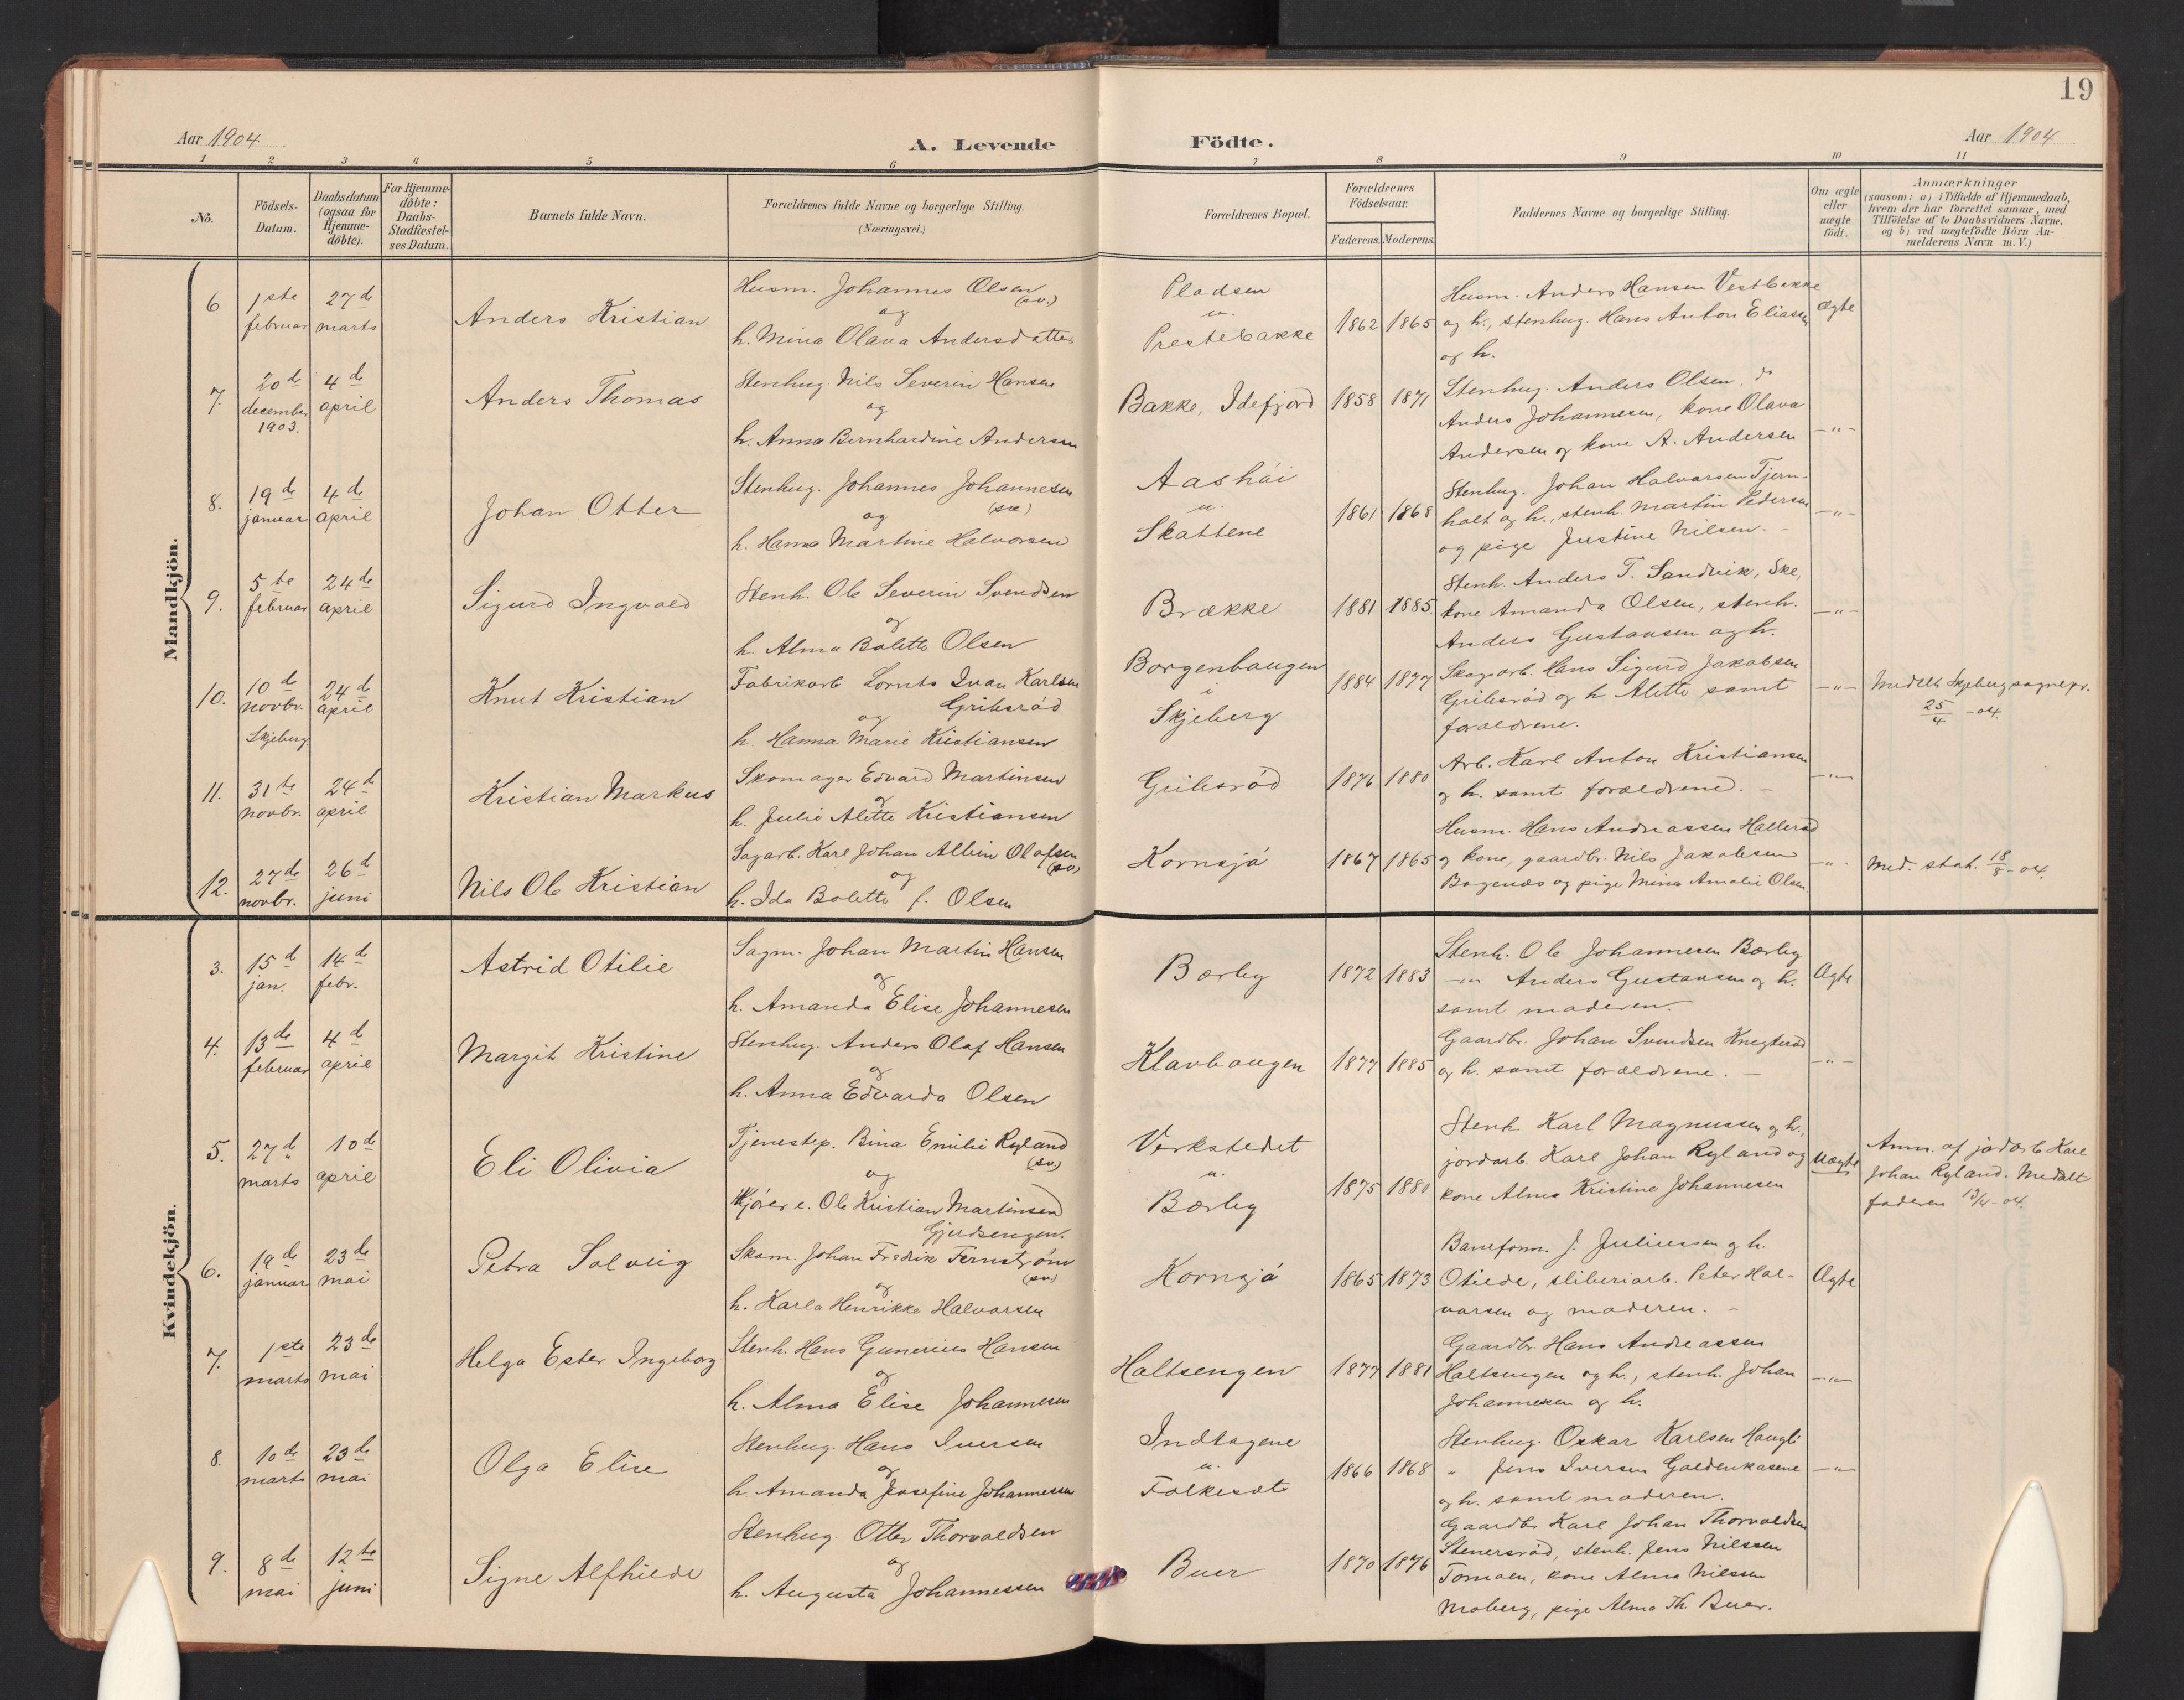 19
Aar 1904
A. Levende Födte.
Aar 1904
1 2 3 4 5 6 7 8 9 10 11
No.
Födsels-
Datum.
Daabsdatum
(ogsaa for
Hjemme-
döbte).
For Hjemme-
döbte:
Daabs-
Stadfæstel-
ses Datum.
Barnets fulde Navn.
Forældrenes fulde Navne og borgerlige Stilling.
(Næringsvei.)
Forældrenes Bopæl.
Forældrenes
Födselsaar.
Faderens. Moderens.
Faddernes Navne og borgerlige Stilling.
Om ægte
eller
uægte
födt.
Anmærkninger
(saasom: a) i Tilfælde af Hjemmedaab,
hvem der har forrettet samme, med
Tilföielse af to Daabsvidners Navne,
og b) ved uægtefödte Börn An-
melderens Navn m. V.)
Mandkjön.
6
1ste
februar
27de
marts
Anders Kristian
Husm. Johannes Olsen
(sv.)
og
h. Mina Olava Andersdatter
Pladsen
u.
Prestebakke
1862 1865
Husm. Anders Hansen Vestbakke
og h., stenhug. Hans Anton Eliassen
og h.
Ægte
7.
20de
december
1903.
4de
april
Anders Thomas
Stenhug. Nils Severin Hansen
og
h. Anna Bernhardine Andersen
Bakke, Idefjord
1858 1871
Stenhug. Anders Olsen, do
Anders Johannesen, kone Olava
Andersen og kone A. Andersen
—"—
8.
19de
januar
4de
april
Johan Otter
Stenhug. Johannes Johannesen
(sv.)
og
h. Hanna Martine Halvorsen
Aashöi
u.
Skattene
1861 1868
Stenhug. Johan Halvorsen Tjern-
holt og h., stenh. Martin Pedersen
og pige Justine Nilsen.
—"—
9.
5te
februar
24de
april
Sigurd Ingvald
Stenh. Ole Severin Svendsen
og
h. Alma Bolette Olsen
Brække
1881 1885.
Stenh. Anders T. Sandvik, Ske,
kone Amanda Olsen, stenh.
Anders Gustavsen og h.
—"—
10.
10de
novbr.
Skjeberg
24de
april
Knut Kristian
Fabrikarb. Lornts Ivan Karlsen
Gribsröd
og
h. Hanna Marie Kristiansen
Borgenhaugen
i
Skjeberg
1884 1877
Skogsarb. Hans Sigurd Jakobsen
Gribsröd og h. Alette samt
forældrene.
—"—
Meddelt Skjeberg sognepr.
25/4 - 04.
11.
31te
novbr.
24de
april
Kristian Markus
Skomager Edvard Martinsen
og
h. Julie Alette Kristiansen
Gribsröd
1876 1880
Arb. Karl Anton Kristiansen
og h. samt forældrene.
—"—
12.
27de
novbr.
26de
juni
Nils Ole Kristian
Sagarb. Karl Johan Albin Olofsen
(sv.)
og
h. Ida Bolette f. Olsen
Kornsjö
1867 1865
Husm. Hans Andreassen Halleröd
og kone, gaardbr. Nils Jakobsen
Bogenæs og pige Mina Amalie Olsen.
—"—
Med. stat. 18/8 - 04.
Kvindekjön.
3.
15de
jan.
14de
febr.
Astrid Otilie
Sagm. Johan Martin Hansen
og
h. Amanda Elise Johannesen
Bærby
1872 1883
Stenh. Ole Johannesen Bærby
—"— Anders Gustavsen og h.
samt moderen.
Ægte
4.
13de
februar
4de
april
Margit Kristine
Stenhug. Anders Olaf Hansen
og
h. Anna Edvarda Olsen
Klavhaugen
1877 1885
Gaardbr. Johan Svendsen Knegteröd
og h. samt forældrene.
—"—
5.
27de
marts
10de
april
Eli Olivia
Tjenestep. Bina Emilie Ryland
(sv.)
og
Kjörer e. Ole Kristian Martinsen
Gjerdsengen.
Verkstedet
u.
Bærby
1875 1880
Stenh. Karl Magnussen og h.,
jordarb. Karl Johan Ryland og
kone Alma Kristine Johannesen
Uægte
Anm. af jordarb. Karl
Johan Ryland. Meddelt
faderen 13/4 - 04.
6.
19de
januar
23de
mai
Petra Solveig
Skom. Johan Fredrik Fernström
(sv.)
og
h. Karla Henrikke Halvorsen
Kornsjö
1865 1873
Baneform. J. Juliussen og h.
Otiede, sliberiarb. Peter Hal-
vorsen og moderen.
Ægte
7.
1ste
marts
23de
mai
Helga Ester Ingeborg
Stenh. Hans Gunerius Hansen
og
h. Alma Elise Johannesen
Holtsengen
1877 1881
Gaardbr. Hans Andreassen
Holtsengen og h., stenh. Johan
Johannesen og h.
—"—
8.
10de
marts
23de
mai
Olga Elise
Stenhug. Hans Iversen
og
h. Amanda Josefine Johannesen
Indtagene
u.
Folkesæt
1866 1868
Stenhug. Oskar Karlsen Haugli
" Jens Iversen Goldenkasene
og h. samt moderen.
—"—
9.
8de
mai
12te
juni
Signe Alfhilde
Stenhug. Otter Thorvaldsen
og
h. Augusta Johannessen
Buer
1870 1876
Gaardbr. Karl Johan Thorvaldsen
Stenersröd, stenh. Jens Nilssen
Tomoen, kone Alma Nilssen
Moberg, pige Alma Th. Buer.